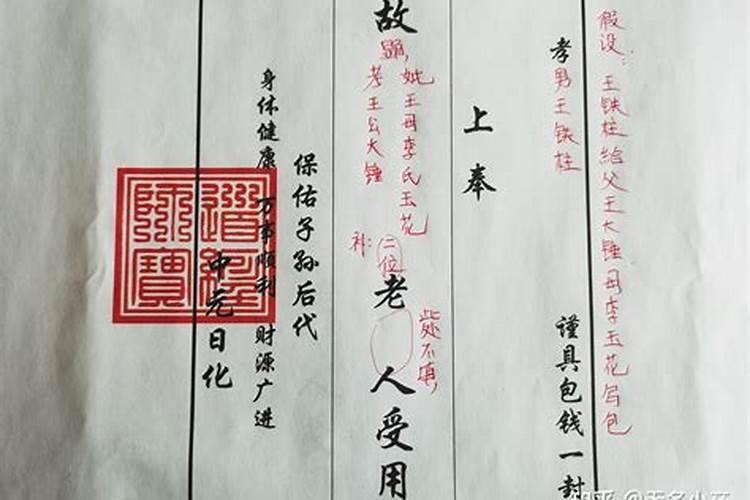 假设：王铁柱给父王大锤母李玉花写包
孝男王铁柱
谨具包钱一封
上奉
故
显妣王母李氏玉花
考王公大锤
补：二位
老人受用
此处不填，
保佑子孙后代
身体健康 万事顺利 财源广进
中元日化
道经师宝
知乎 @无名小卒